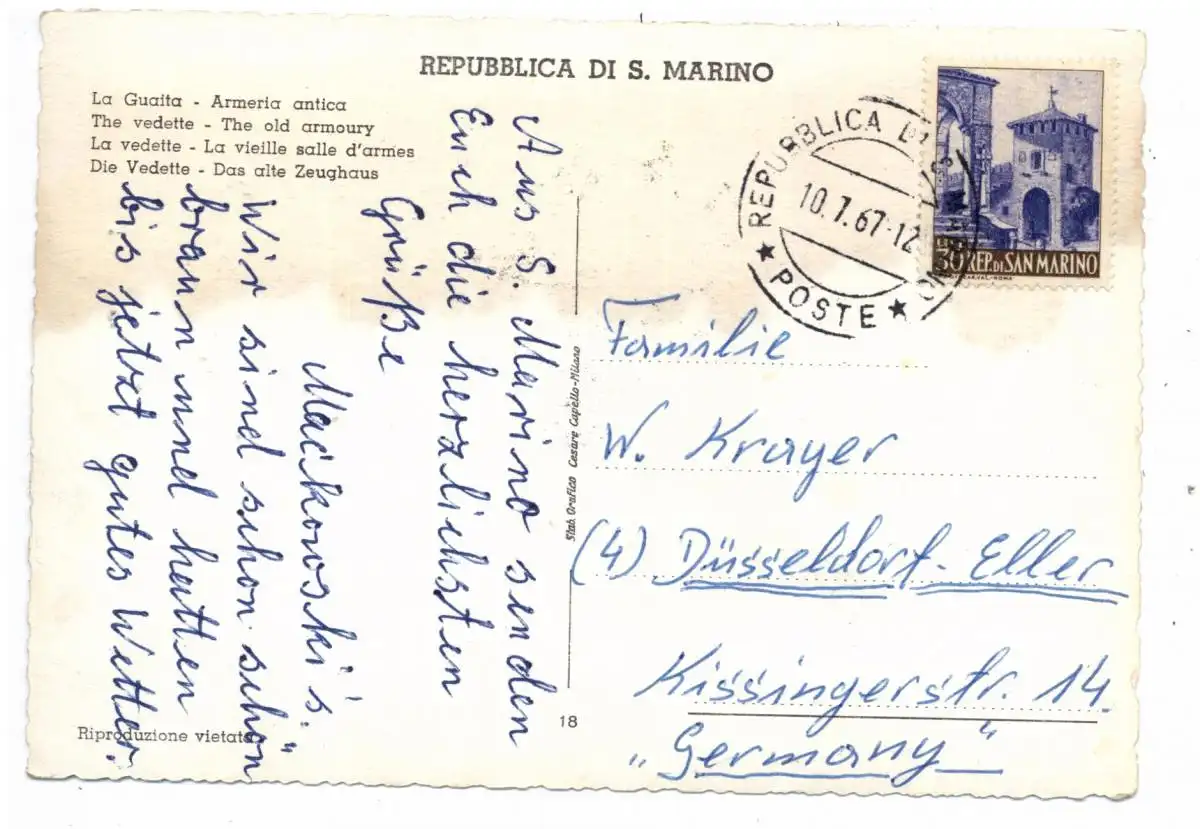 REPUBBLICA DI S. MARINO
La Guaita - Armeria antica
The vedette - The old armoury
La vedette - La vieille salle d'armes
Die Vedette - Das alte Zeughaus
Aus S. Marino senden
Euch die herzlichsten
Grüße
Mackowski's.
Wir sind schon schön
braun und hatten
bis jetzt gutes Wetter.
REPUBBLICA DI S. MARINO
10.7.67-12
★ POSTE ★
30 REP. DI SAN MARINO
Familie
W. Krayer
(4) Düsseldorf-Eller
Kissingerstr. 14.
„Germany"
Stab. Grafico Cesare Capello-Milano
18
Riproduzione vietata